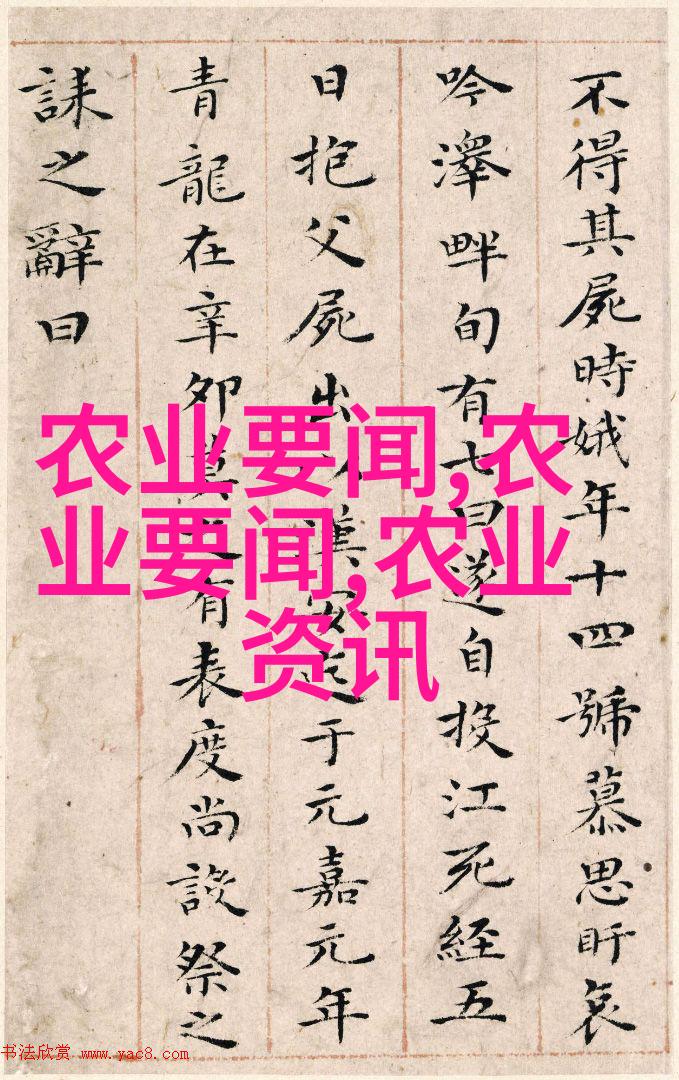 不得其屍時娥年十四號慕思盱哀
吟澤畔旬有七日遂自投江死經五
日抱父屍出以漢安迄于元嘉元年
青龍在辛卯莫之有表度尚設祭之
誄之辭曰
农业要闻,农
业要闻,农业
资讯
书法欣赏 www.yac8.com